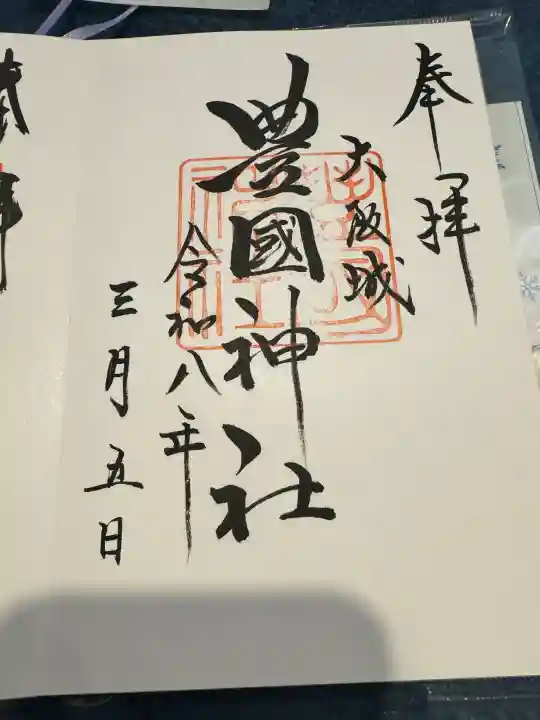 奉拝
大阪城
豊國神社
令和八年
三月五日